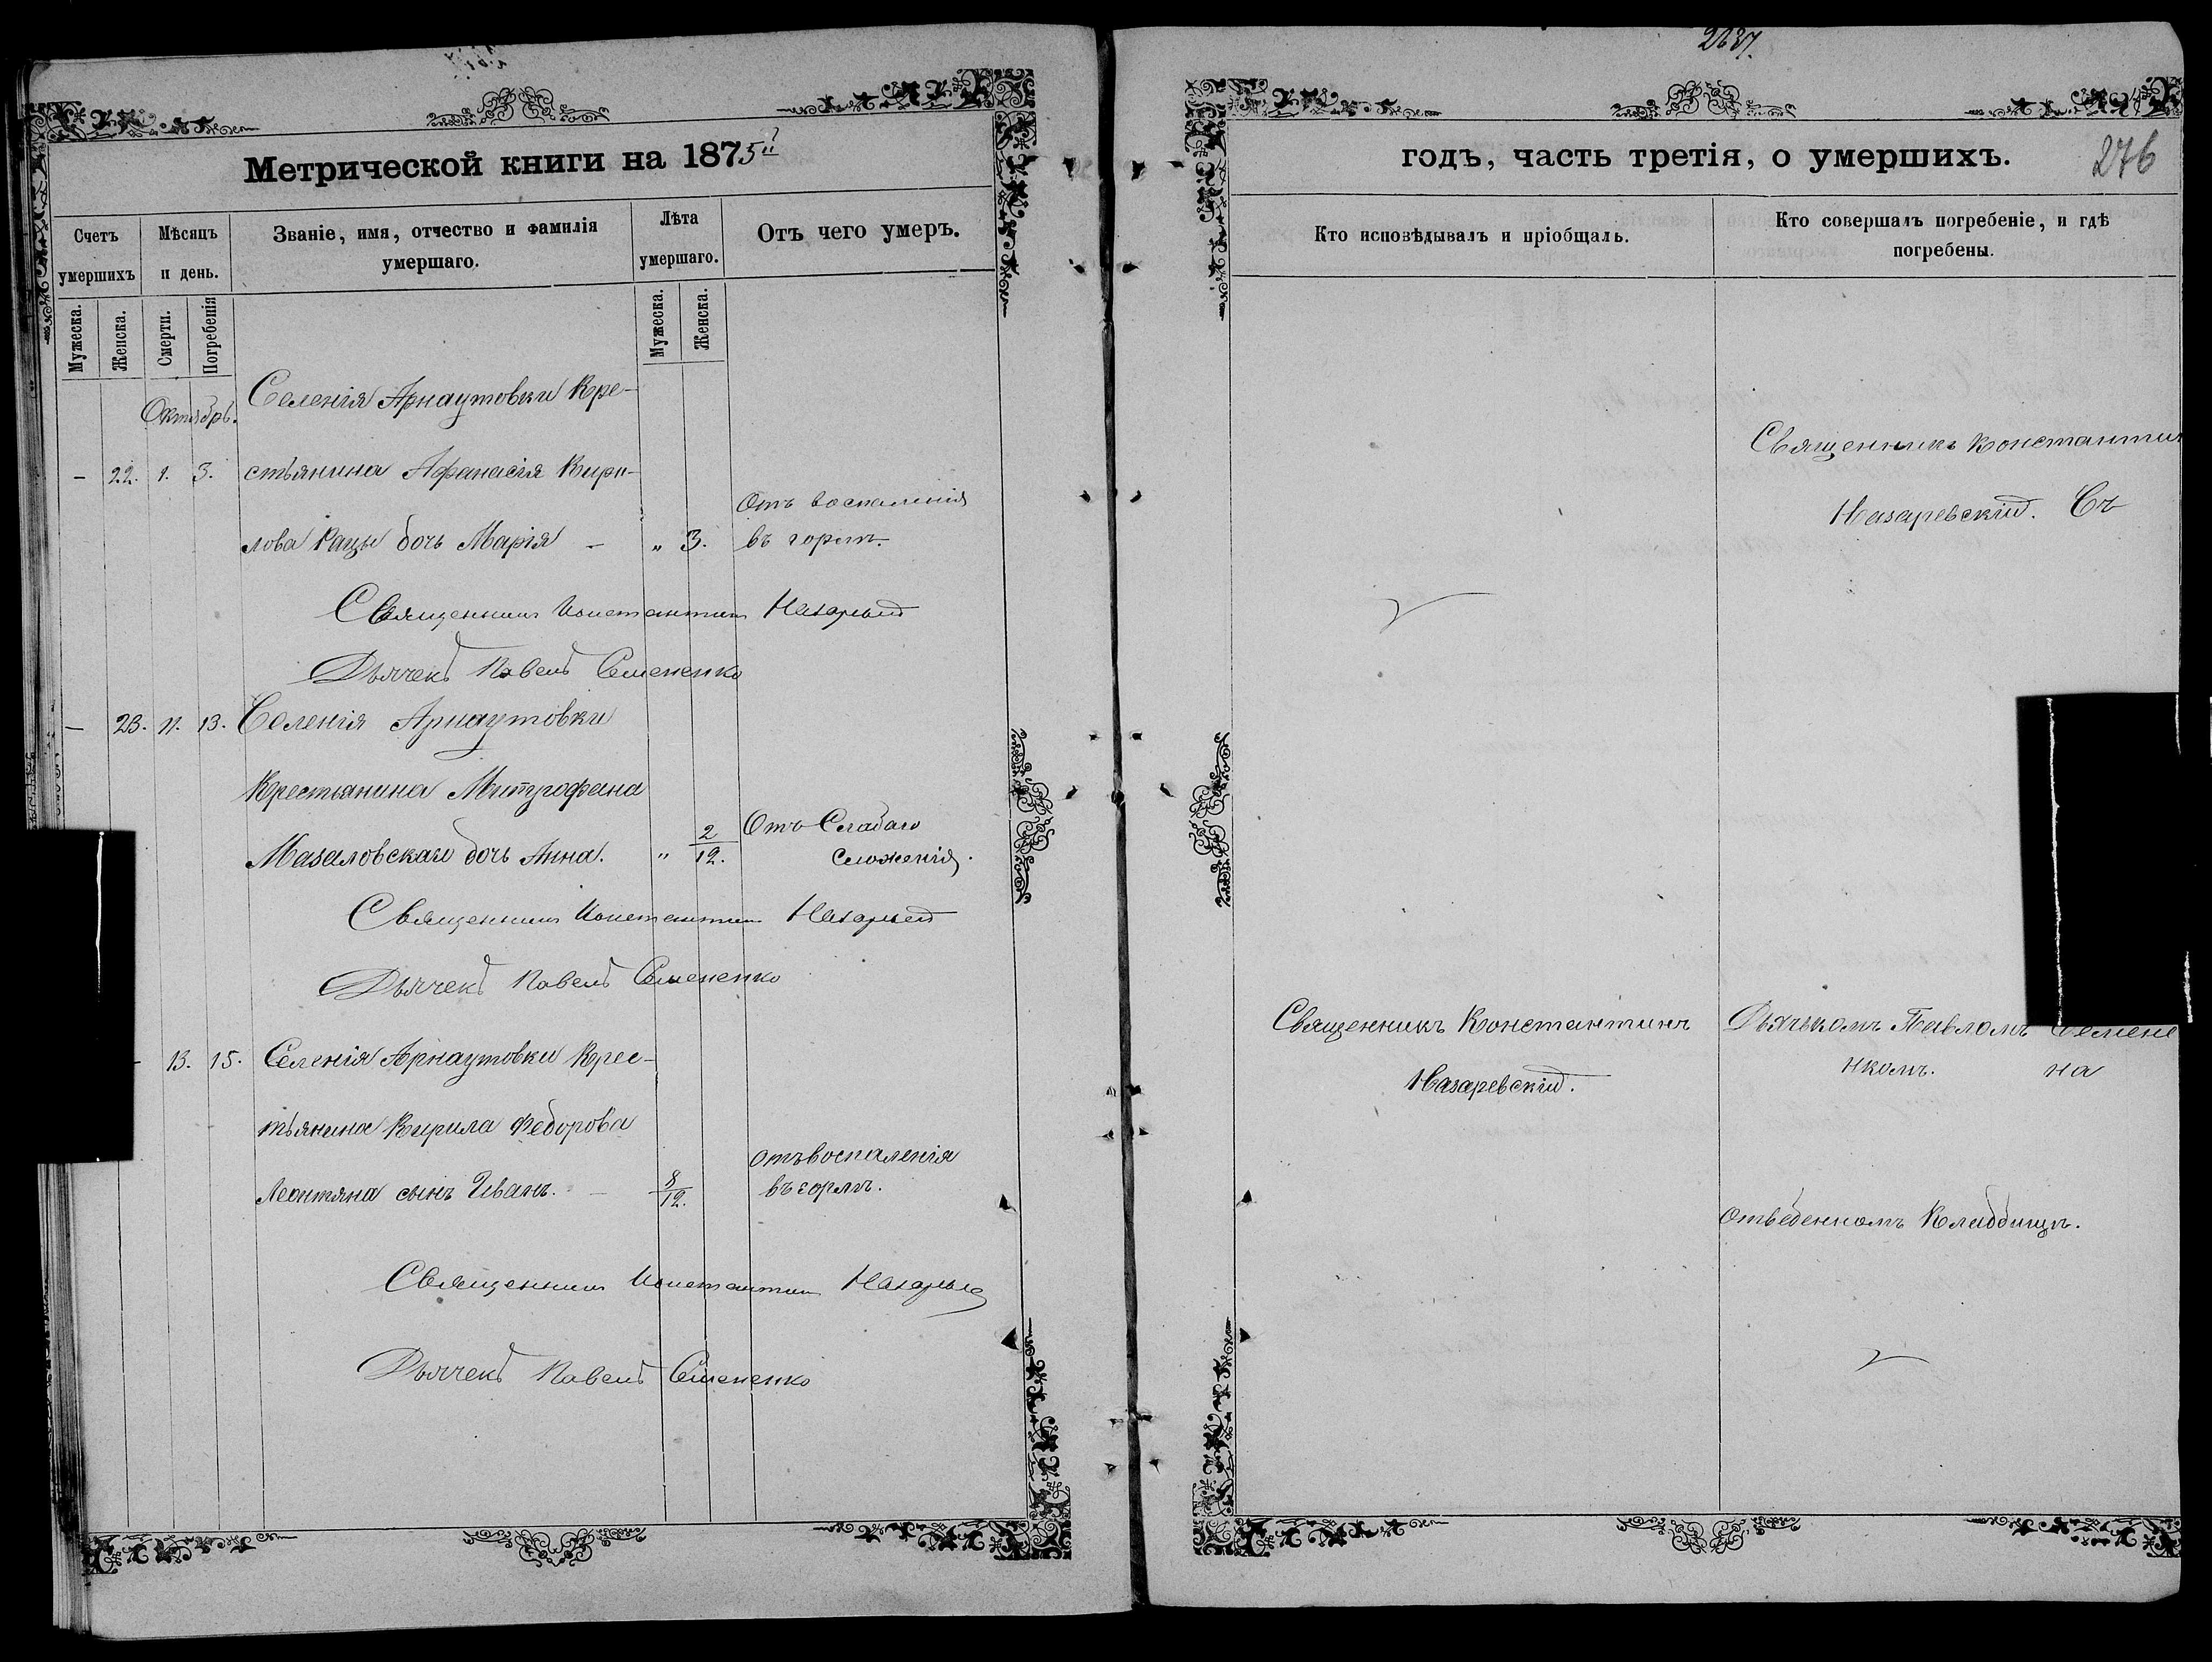 Метрической книги на 1875й
Счетъ умершихъ
Мѣсяцъ и день.
Званіе, имя, отчество и фамилія умершаго.
Лѣта умершаго.
Отъ чего умеръ.
Мужеска.
Женска.
Смерти.
Погребенія
Мужеска.
Женска.
Октябрь.
Селенія Арнаутовки Кре-
– 22. 1. 3. стьянина Афанасія Кири-
Отъ воспаленія
лова Рацы дочь Марія – „ 3. въ горлѣ.
Священникъ Константинъ
Дьячекъ Павелъ Семененко
– 23. 11. 13. Селенія Арнаутовки
Крестьянина Митрофана
Отъ Слабаго
Мазаловскаго дочь Анна. „ 2/12. сложенія.
Священникъ Константинъ
Дьячекъ Павелъ Семененко
13. 15. Селенія Арнаутовки Крес-
тьянина Кирила Федорова
отъ воспаленія
Леонтяна сынъ Иванъ. – 8/12. въ горлѣ.
Священникъ Константинъ
Дьячекъ Павелъ Семененко
2637.
годъ, часть третія, о умершихъ.
276
Кто исповѣдывалъ и пріобщалъ.
Кто совершалъ погребеніе, и гдѣ погребены.
Священникъ Константин
Назаревскій. Съ
Священникъ Константинъ
Назаревскій.
Дьячькомъ Павломъ Семене
нкомъ. на
отведенномъ Кладбищѣ.